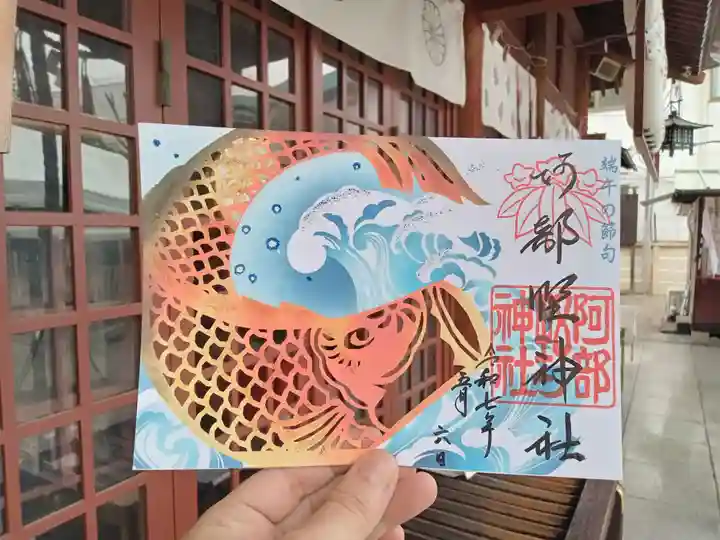 端午の節句
阿部野神社
阿部野神社
令和七年
五月
六日